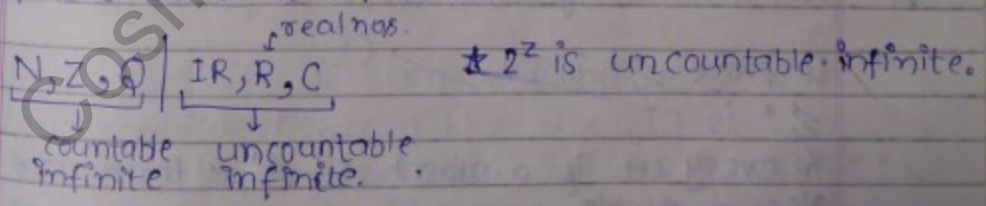 real nos.
N, Z, Q | IR, R, C
countable infinite
uncountable infinite.
* 2^Z is uncountable infinite.